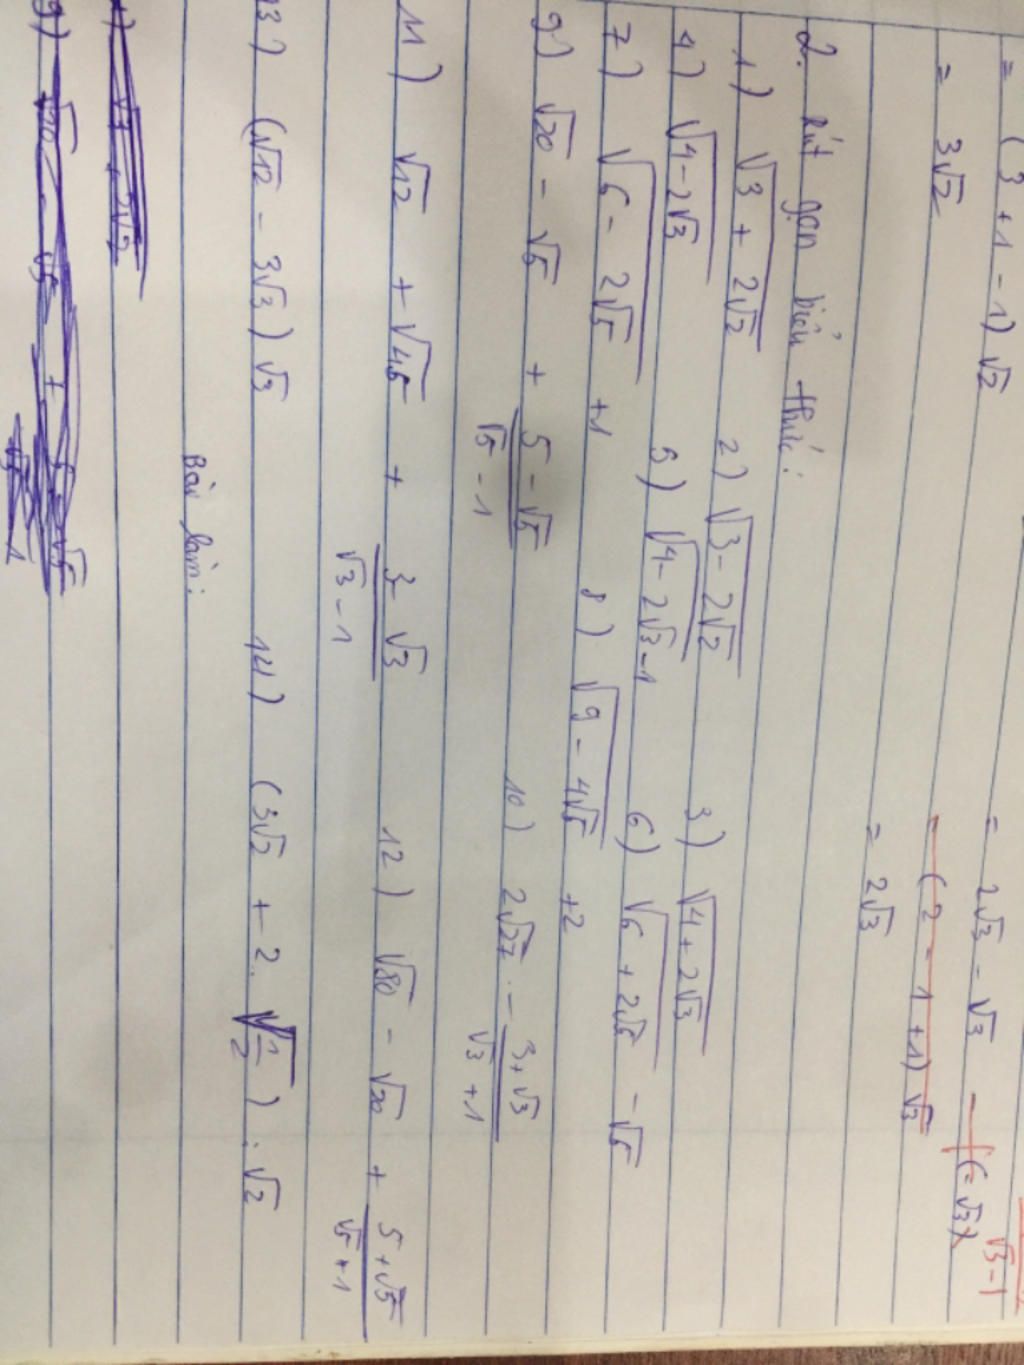 = (3 + 1 - 1) √2
= 3√2
= 2√3 - √3 - (-√3)
√3 - 1
= (2 - 1 + 1) √3
= 2√3
2. Rút gọn biểu thức:
1) √(3 + 2√2) 2) √(3 - 2√2) 3) √(4 + 2√3)
4) √(4 - 2√3) 5) √(4 - 2√3) - 1 6) √(6 + 2√5) - √5
7) √(6 - 2√5) + 1 8) √(9 - 4√5) + 2
9) √20 - √5 + (5 - √5)/(√5 - 1) 10) 2√27 - (3 + √3)/(√3 + 1)
11) √12 + √45 + (3 - √3)/(√3 - 1) 12) √80 - √20 + (5 + √5)/(√5 + 1)
13) (√12 - 3√3) √3 14) (3√2 + 2.√(1/2)) : √2
Bài làm:
9)